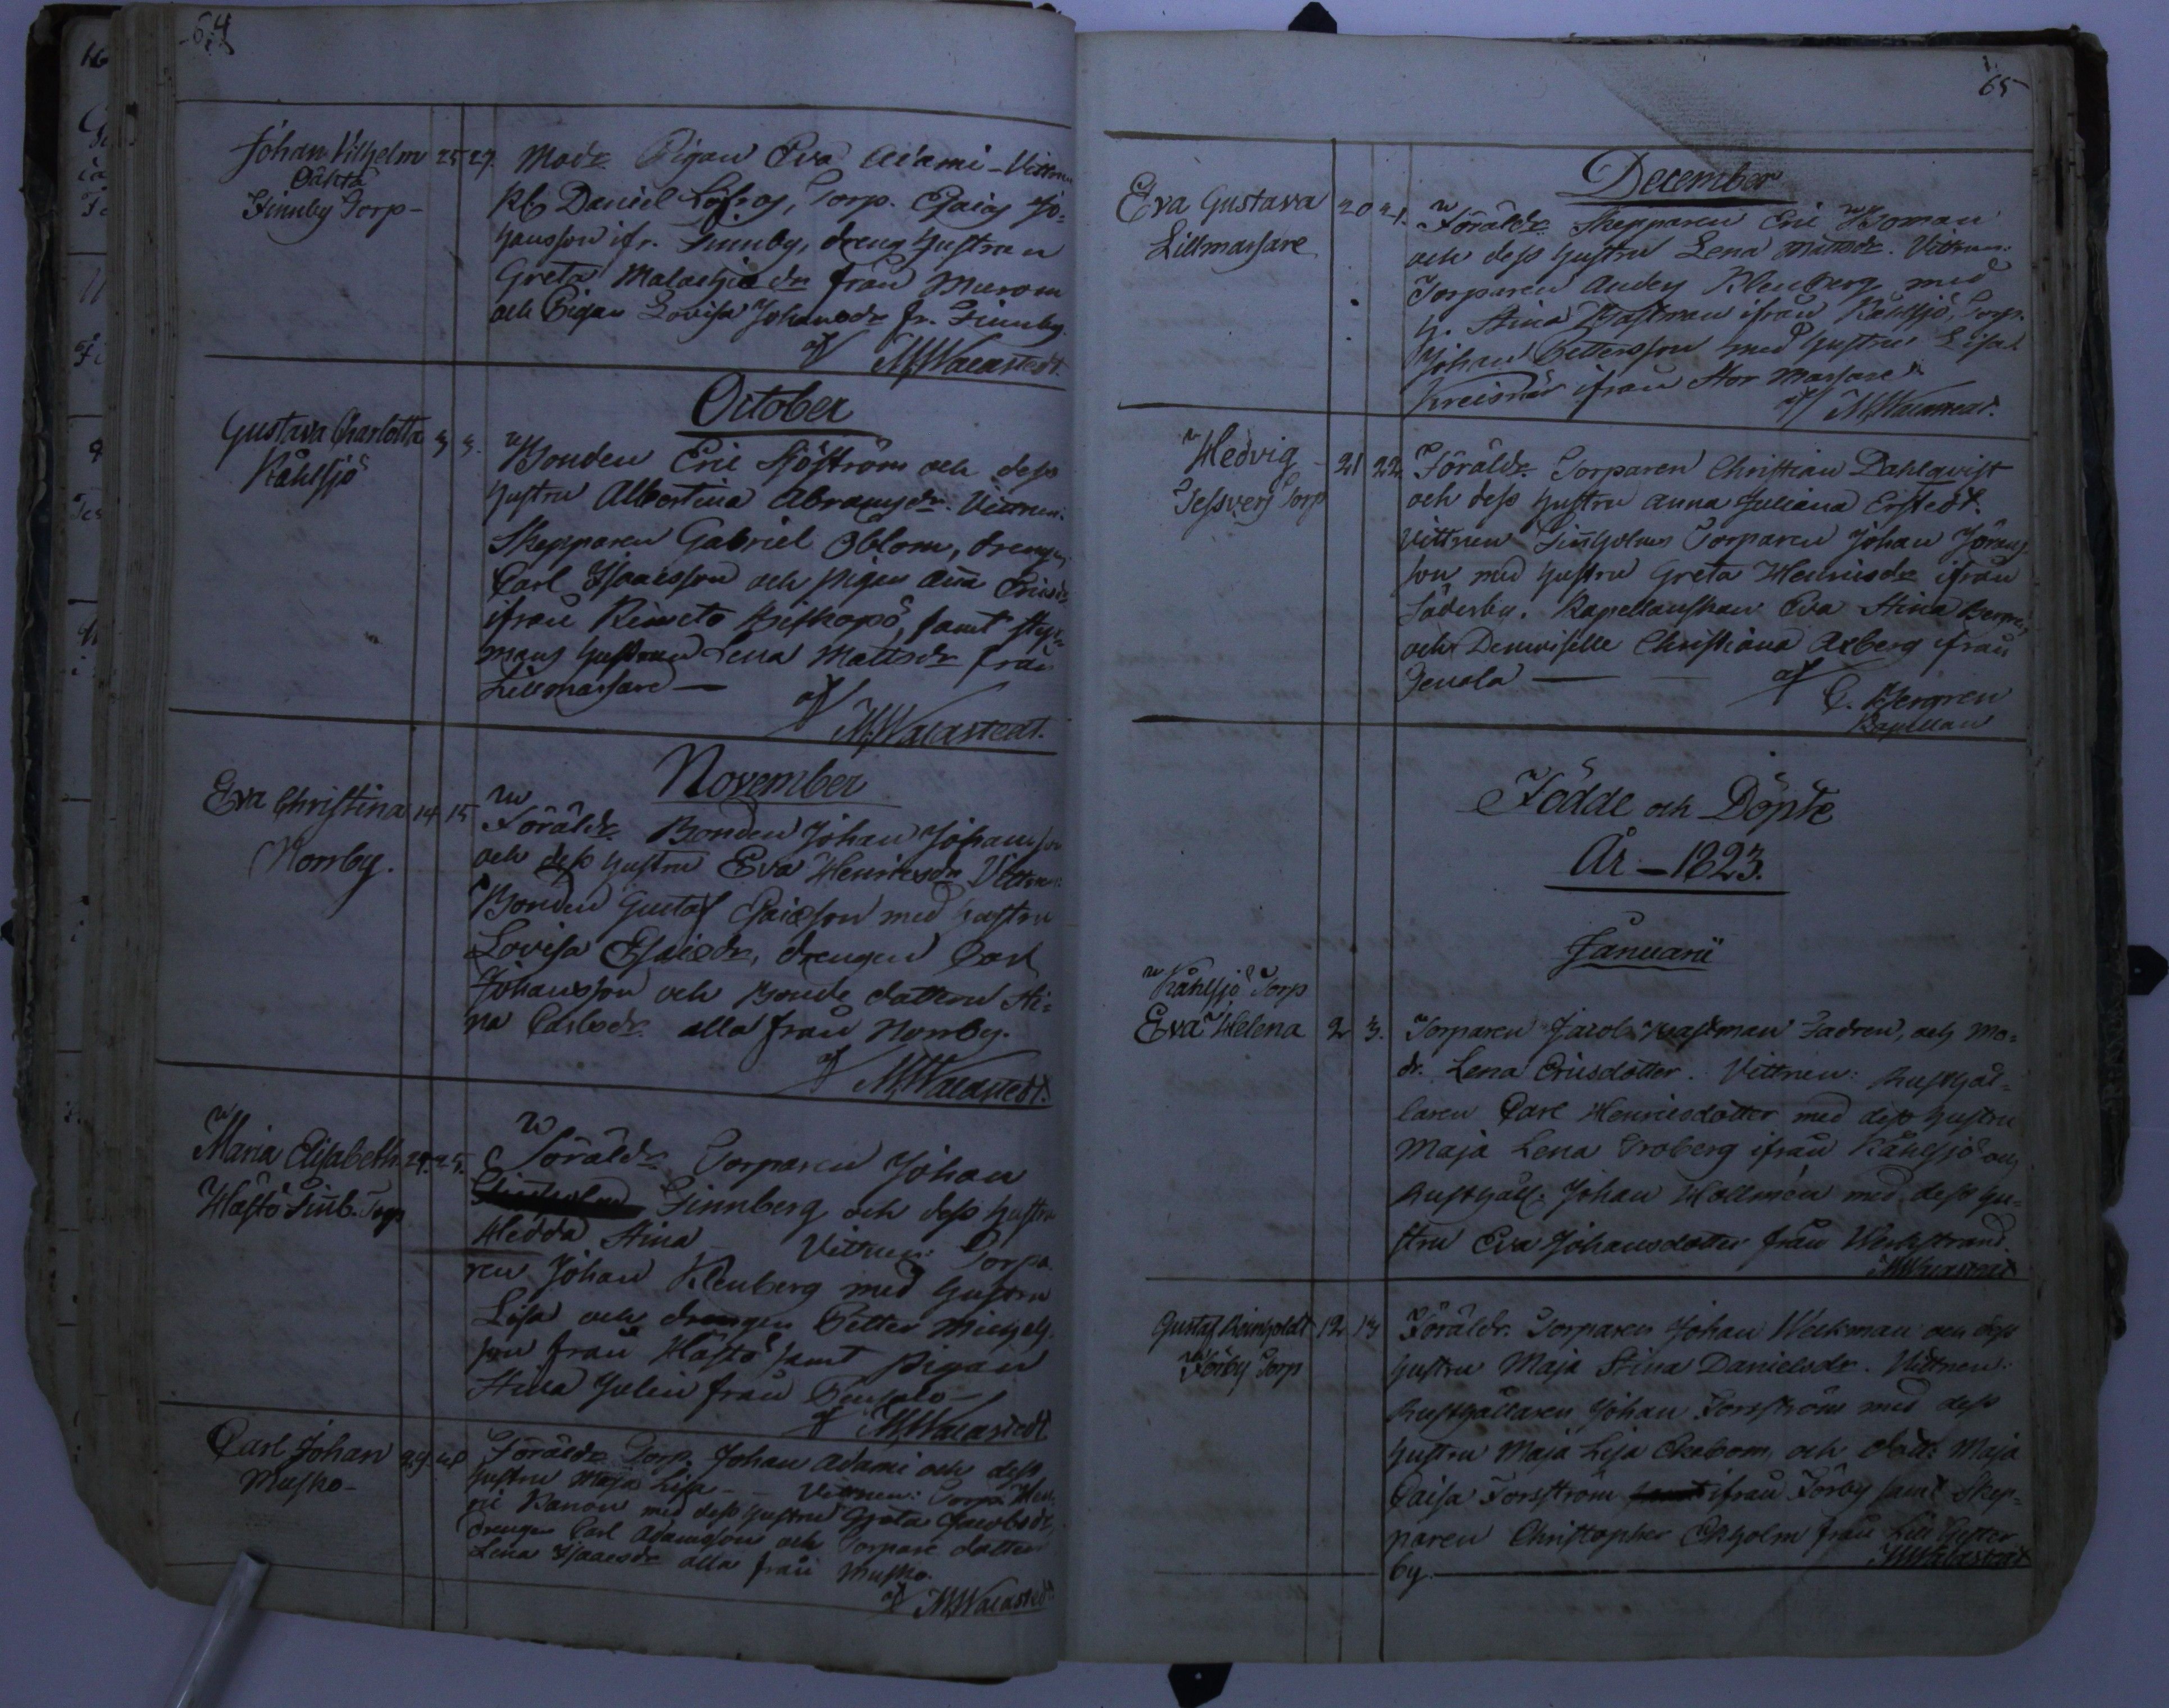 64
Johan Vilhelm 25 27. Modr Pigan Eva Adami - Vittn
Oäkta
Finnby Torp -
Kl. Daniel Löfros, Torp. Esaias Jo=
hansson ifr. Finnby, dreng hustrun
Greta Malachiædr från Murom
och Pigan Lovisa Johansdr fr. Finnby.
af M. Walastedt.
October
Gustava Charlotta 3 3.
Kåhlsjö
Bonden Eric Sjöström och dess
hustru Albertina Abramsdr. Vittnen:
Skepparen Gabriel Öblom, drengen
Carl Isaacsson och pigan Aña Ericsdr
ifrån Rimito Biskopö, samt
mans hustrun Lena Mattsdr från
Lillmassare —
af M. Walastedt.
November
Eva Christina 14 15
Norrby.
Föräldr Bonden Johan Johansson
och dess hustru Eva Henricsdr Vittnen:
Bonden Gustaf Esaiæson med hustru
Lovisa Esaiædr, drengen Carl
Johansson och Bonde dottern Sti=
na Carlsdr alla från Norrby.
af M. Walastedt.
Maria Elisabeth 24. 25.
Hästö Finb. Torp
Föräldr Torparen Johan
Finnberg och dess hustru
Hedda Stina — Vittnen: Torpa
ren Johan Klenberg med hustru
Lisa och drengen Petter Michels
son från Hästö samt pigan
Stina Julin från
af M. Walastedt
Carl Johan 29
Musko -
Föräldr Torp. Johan Adami och dess
hustru Maja Lisa - - Vittnen: Torp. Hen
ric Kanon med dess hustru Greta Jacobsdr,
Drengen Carl Adamsson och Torpare dottern
Lena Isaacsdr alla från Musko.
af M. Walastedt
65
December
Eva Gustava 20 21.
Lillmassare
Föräldr Skepparen Eric Boman
och dess hustru Lena Mattsdr. Vittnen:
Torparen Anders Klenberg med
h. Stina Wastman ifrån Kåhlsjö, Torp.
Johan Pettersson med hustru Lisa
ifrån Stor Massare
af M. Walastedt.
Hedvig - 21 22.
Tessvers Torp
Föräldr Torparen Christian Dahlqvist
och dess hustru Anna Juliana Erstedt.
Vittnen Finholms Torparen Johan Jörans
son med hustru Greta Henricsdr ifrån
Söderby. Kapellanskan Eva Stina Bergren
och Demoiselle Christiana Axberg ifrån
Genola —
af C. Bergren
Kapellan
Födde och Döpte
År - 1823.
Januarii
Kåhlsjö Torp
Eva Helena 2 3. Torparen Jacob Wastman Fadren, och Mo=
dr. Lena Ericsdotter. Vittnen: Rusthål=
laren Carl Henricsdotter med dess hustru
Maja Lena Broberg ifrån Kåhlsjö och
Rusthåll. Johan Hollmén med dess hu=
stru Eva Johansdotter från Westestrand.
M. Walastedt
Gustaf Reinholdt 12 13
Förby Torp
Föräldr. Torparen Johan Weckman och dess
hustru Maja Stina Danielsdr. Vittnen:
Rusthållaren Johan Forsström med dess
hustru Maja Lisa Ekebom, och dottr Maja
Caisa Forsström ifrån Förby samt Skep=
paren Christopher Ekholm från Lill Gester
by. —
M. Walastedt